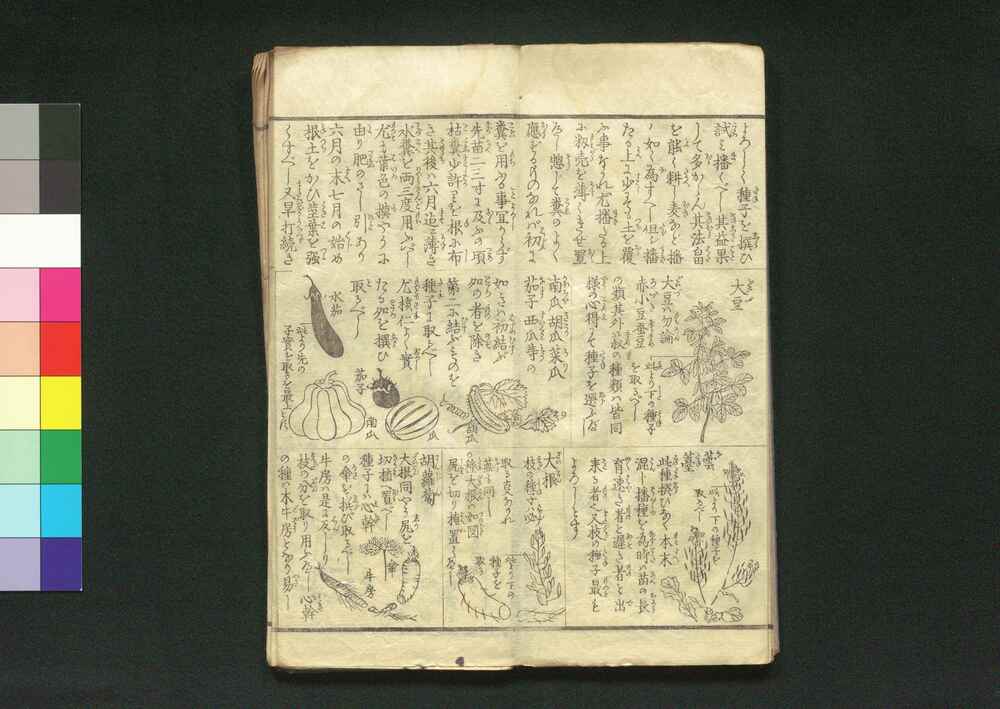 よろしく種子を撰ひ
試ミ播くべし其益果
して多からん其法畠
を能く耕し麦など播
く如く為すべし但シ播
たる上に少そく土を覆
ふ事なかれ尤播きる上
に籾売を薄くきせ置
べし惣して糞のよく
應ずるりのなれバ初よ
糞を用ふる事宜からず
先苗二三寸に及ぶの頃
枯草少許りを根に布
き其後ハ六月迠に薄き
水糞を両三度用ふべし
尤葉色の摸やうに
由り肥のさし引あり
六月の末七月の始め
根土をかひ莖葉を強
くすべし又早打続き
大豆
大豆ハ勿論
赤小豆蚕豆
の類其外の穀の種類ハ皆同
様の心得にて種子を選ふべし
此より下の種子
を取るべし
南瓜胡瓜菜瓜
茄子西瓜等の
如きハ初結ぶ
処の者を除き
第二に結ぶものを
種子に取るべし
尤核仁よく實
たる処を撰ひ
取るべし
水茄
此より先の
子實を取るを最上とす
茄子
南瓜
瓜
胡瓜
蕓薹
此より下の種子を
取るべし
此種撰びなく本末
混し播種する為時ハ苗の長
育速き者と遅き者と出
来る者也大枝の種子最も
よろしとす
大根
枝の種子ハ必
取るべからず
蕪も同し
の條大根の如図
尻を切り掩置くべし
此より下の
種子を
取る
胡蘿蔔
大根同やう尻を
切植へ置べし
種子ハ心幹
の傘を撰び取るべし
牛房の是に反しより
枝の分を取り用ふべし心幹
の種ハ木牛房となり易し
傘
牛房